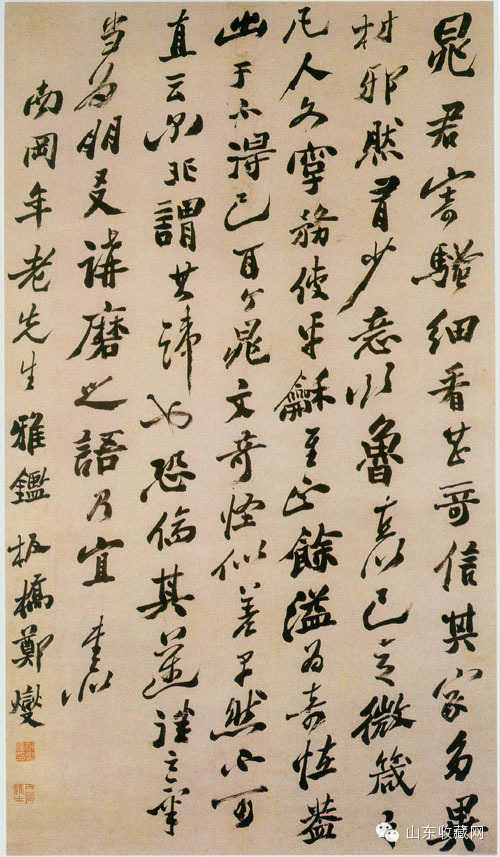 晁君寄騷細看甚奇信其家多異
材邪然有少意以魯直以己意微箴之
凡人文字務使平龢至足餘溢為奇恠葢
出于不得已耳晁文奇怪似差早然不可
直云尔非謂其諱也恐傷其邁之氣
當為朋友講磨之語乃宜 書似
南岡年老先生雅鑑 板橋鄭燮
山东收藏网